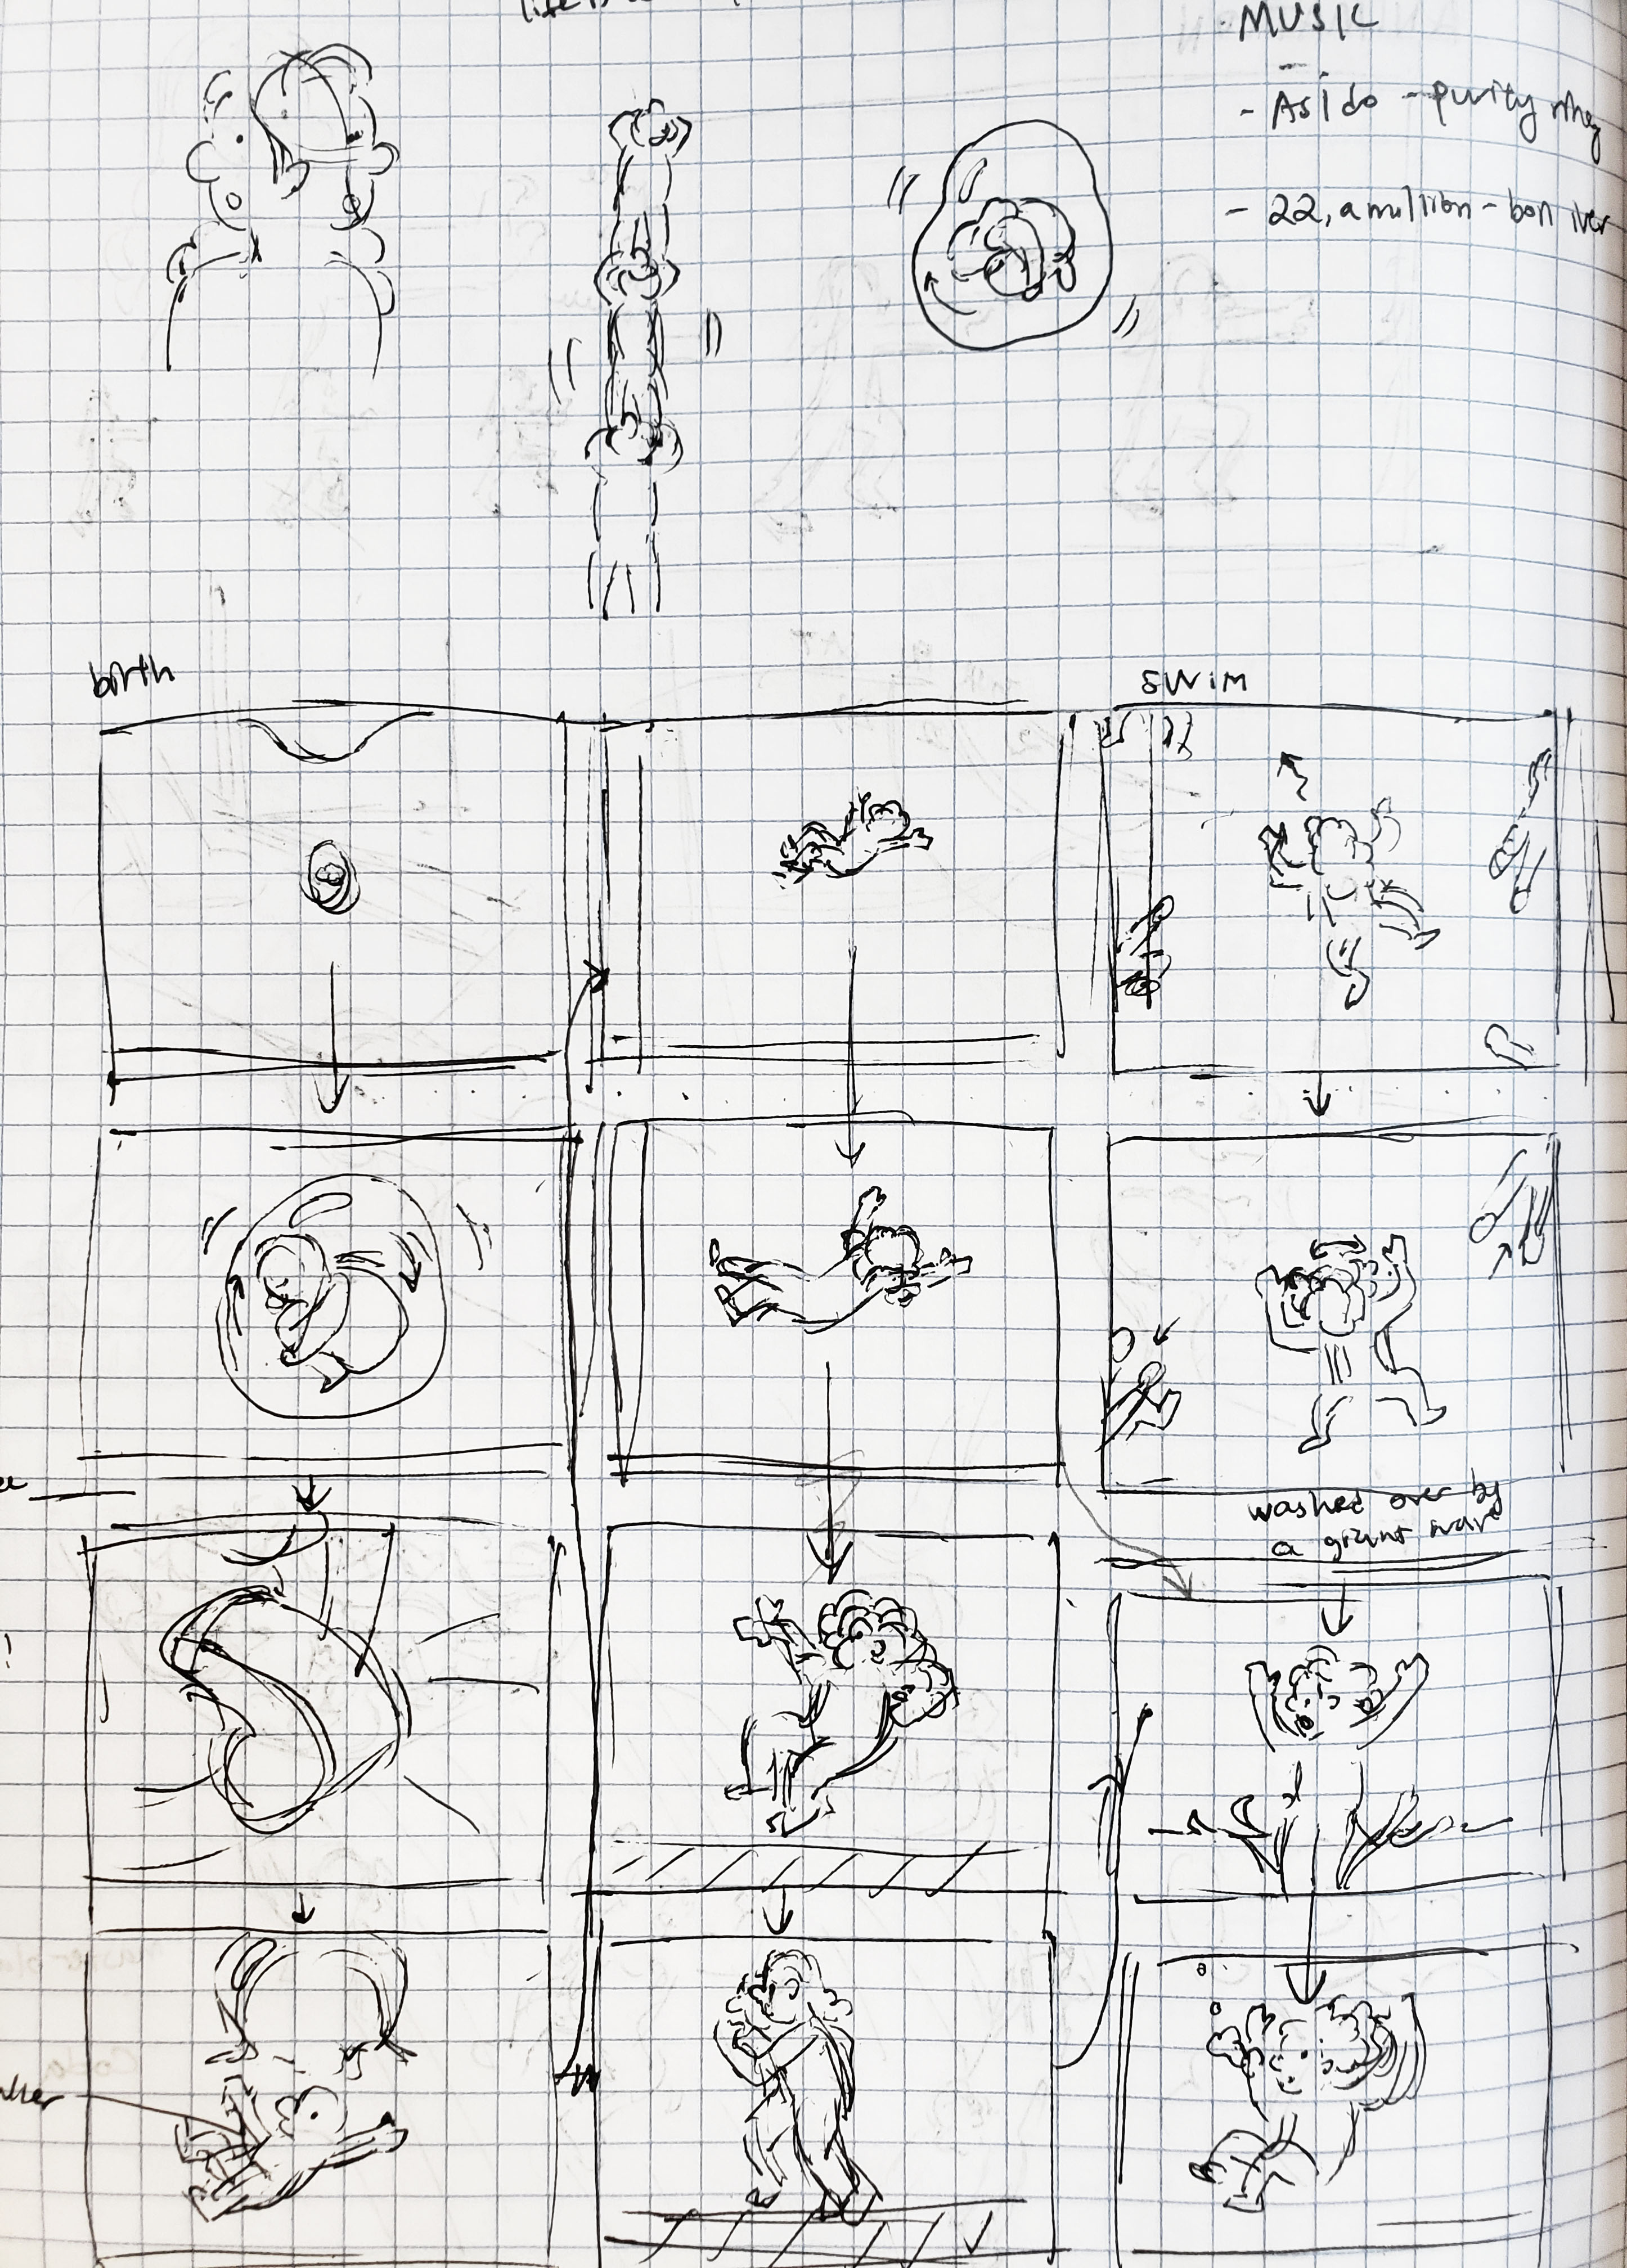 MUSIC
- Asido - purity ring
- 22, a million - bon iver
birth
swim
washed over by
a giant wave
!